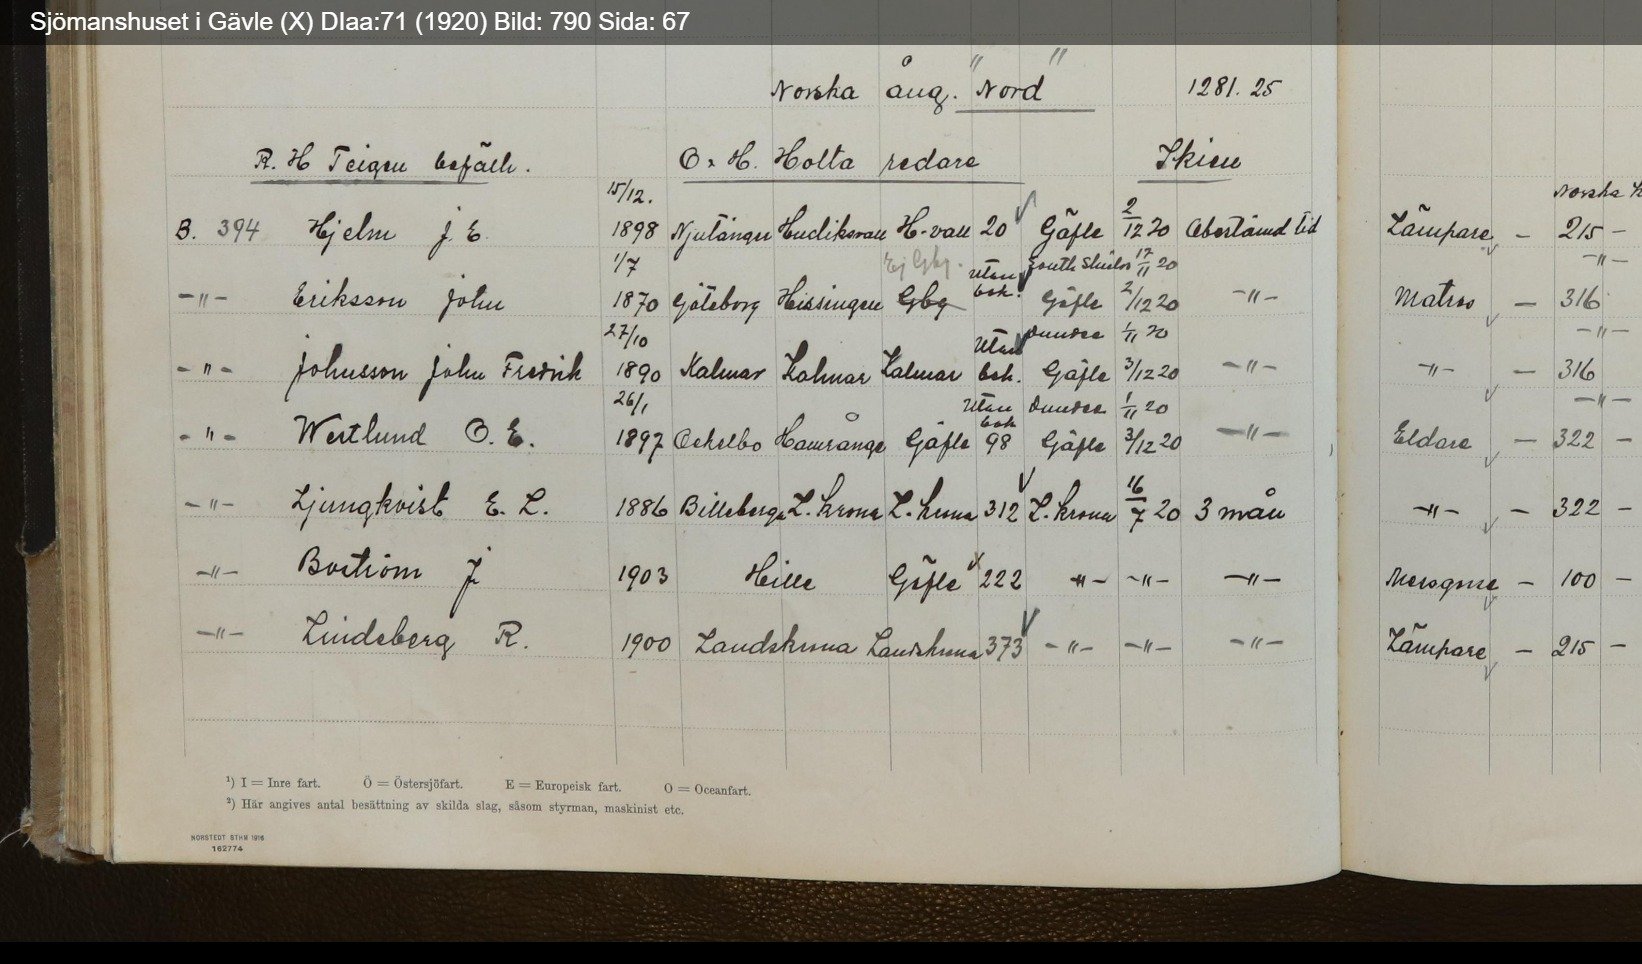 Sjömanshuset i Gävle (X) DIaa:71 (1920) Bild: 790 Sida: 67
Norska ång. "Nord" 1281.25
R. H Teigen befälh. O. H. Holta redare Skien
15/12. Norska
B. 394 Hjelm J. E. 1898 Njutånger Hudiksvall H-vall 20 Gäfle 2/12 20 Obestämd tid Lämpare — 215 —
1/7 Ej Gbg. Utan South Shields 17/11 20 —"—
—"— Eriksson John 1870 Göteborg Hissingen Gbg bok. Gäfle 2/12 20 —"— Matros — 316
27/10 Utan Dundee 1/11 20 —"—
—"— Johnsson John Fredrik 1890 Kalmar Kalmar Kalmar bok. Gäfle 3/12 20 —"— —"— — 316
26/1 Utan bok Dundee 1/11 20 —"—
—"— Westlund O. E. 1897 Ockelbo Hamrånge Gäfle 98 Gäfle 3/12 20 —"— Eldare — 322 —
—"— Ljungkvist E. L. 1886 Billeberga L. krona L. krona 312 L. krona 16/7 20 3 mån —"— — 322 —
—"— Boström J 1903 Hille Gäfle 222 —"— —"— —"— — 100 —
—"— Lindeberg R. 1900 Landskrona Landskrona 373 —"— —"— —"— Lämpare — 215 —
¹) I = Inre fart. Ö = Östersjöfart. E = Europeisk fart. O = Oceanfart.
²) Här angives antal besättning av skilda slag, såsom styrman, maskinist etc.
NORSTEDT STHM 1916
162774